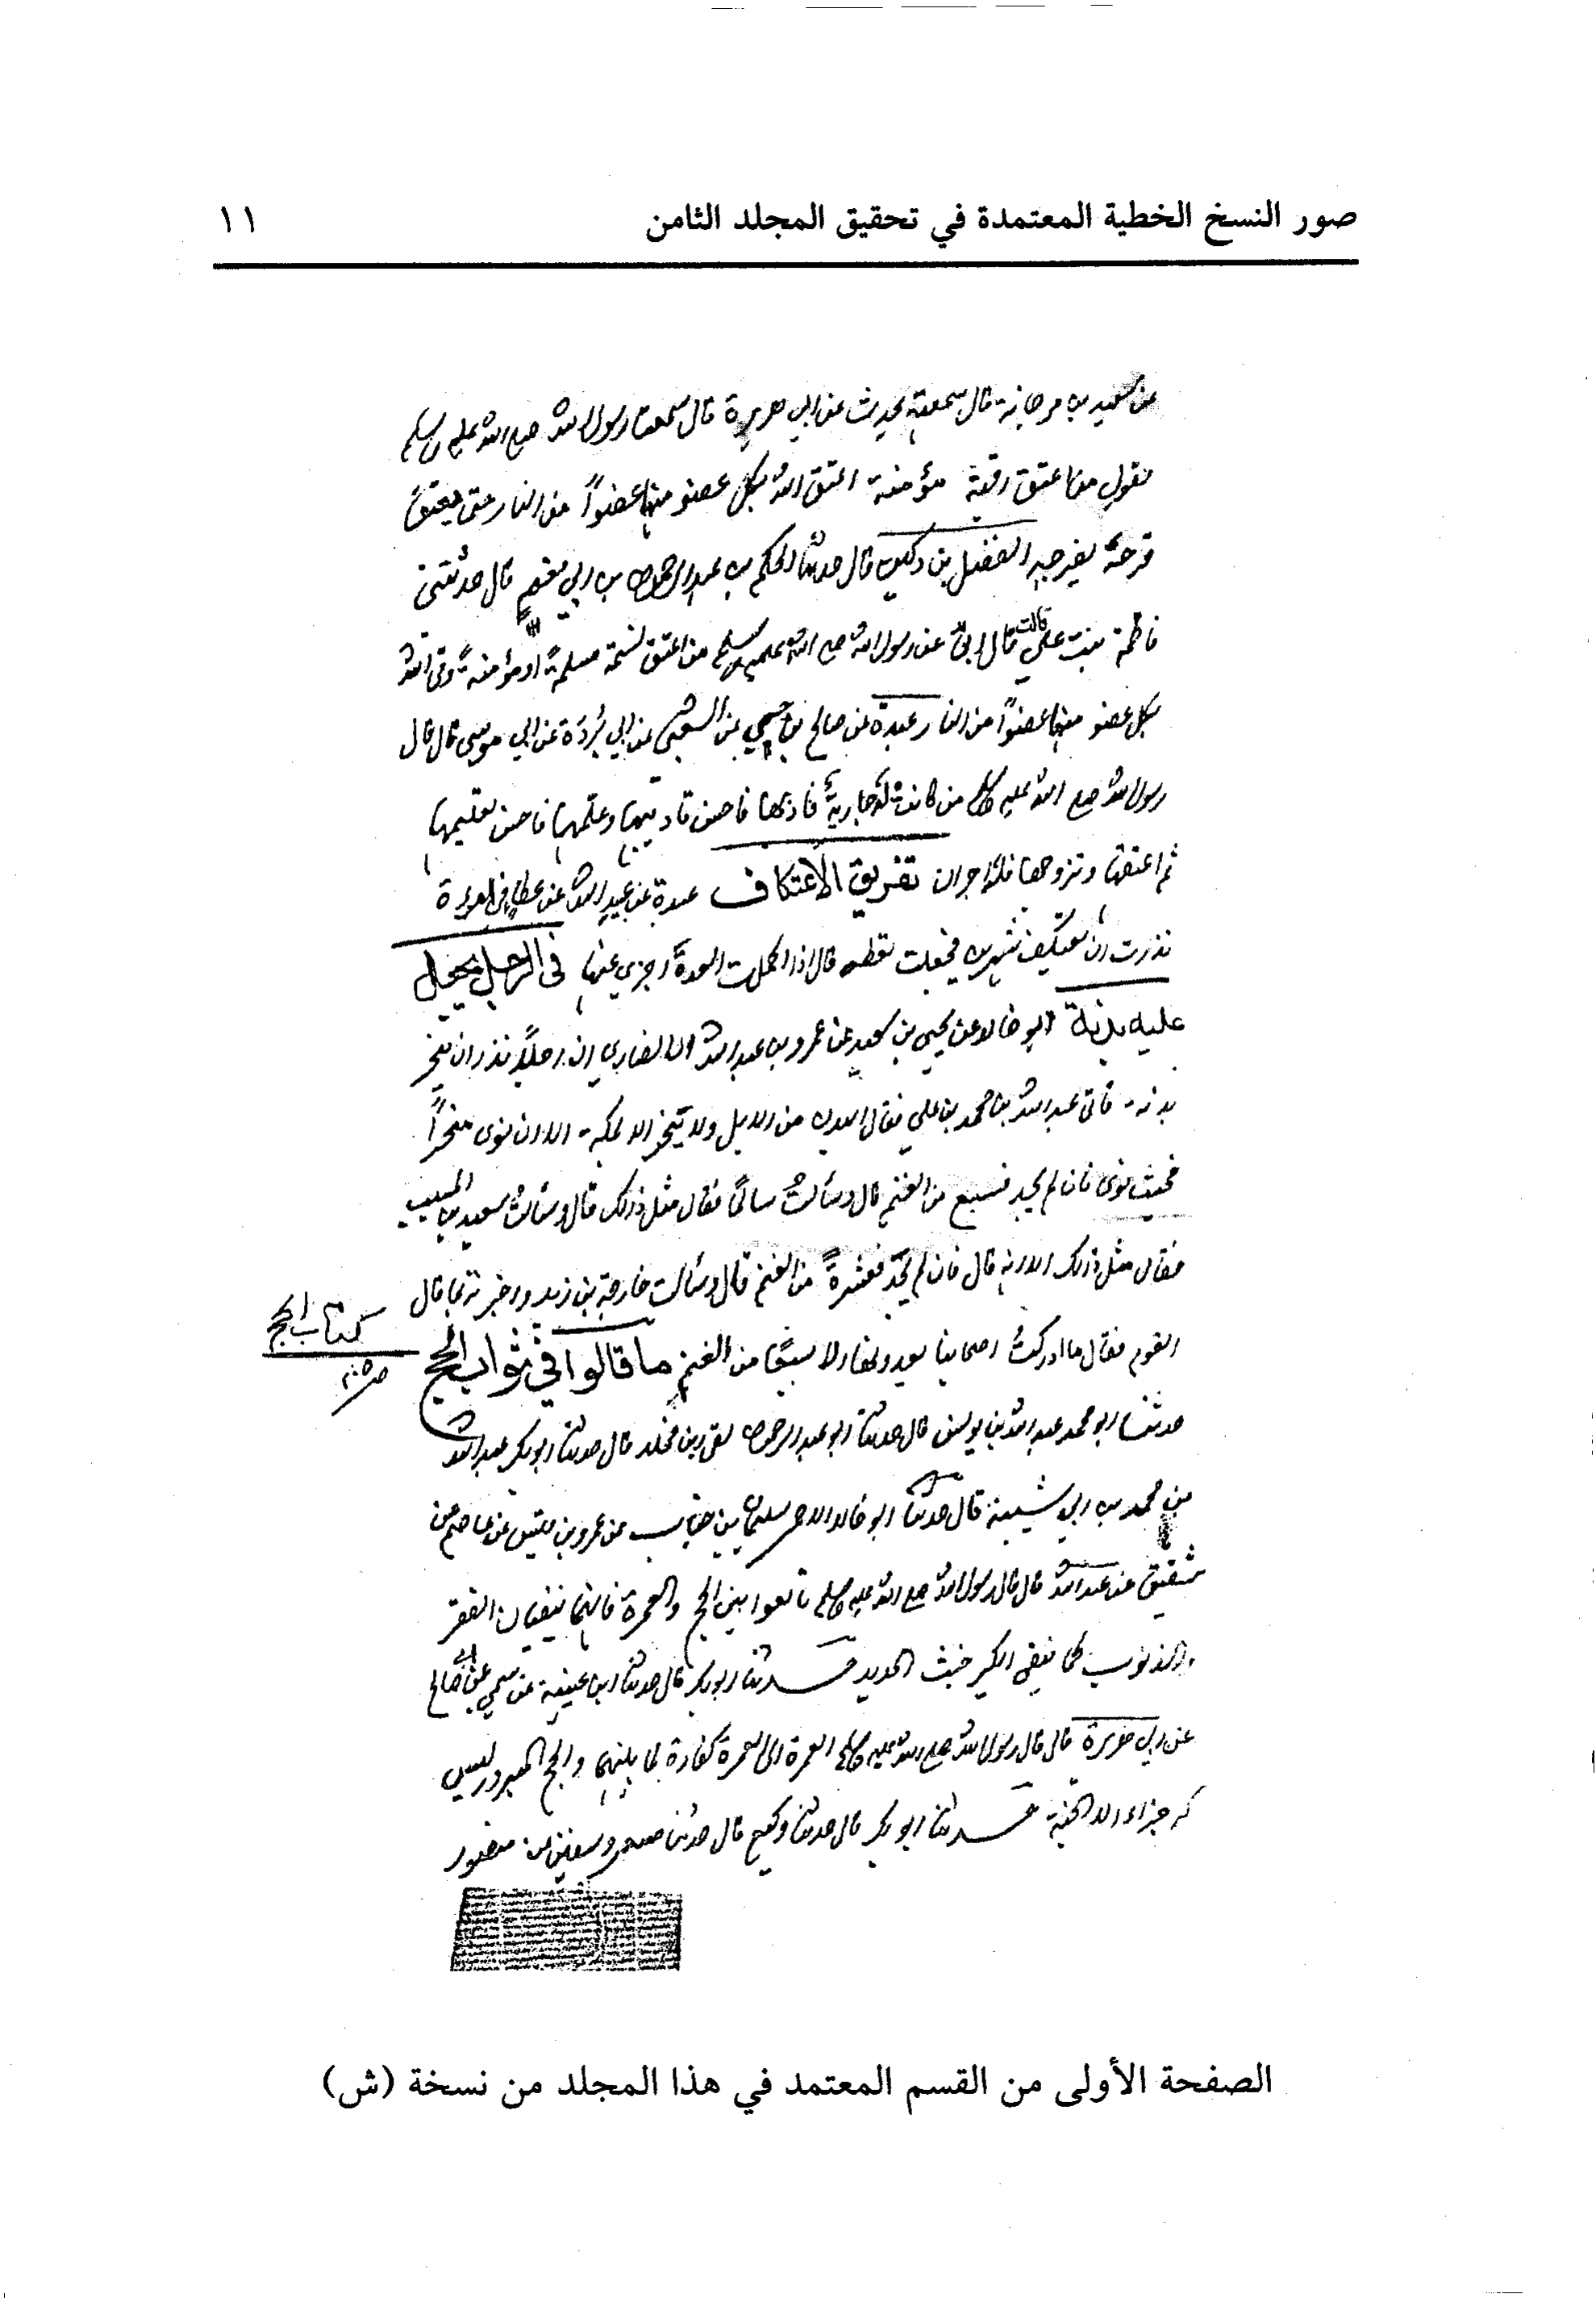 صور النسخ الخطية المعتمدة في تحقيق المجلد الثامن ١١
عن سعيد بن مرجانة قال سمعته يحدث عن أبي هريرة قال سمعت رسول الله صلى الله عليه وسلم
يقول من اعتق رقبة مؤمنة اعتق الله بكل عضو منها عضواً من النار حتى يعتق
فرجه بفرجه الفضل بن دكين قال حدثنا الحكم بن عبد الرحمن بن ابي نعم قال حدثتني
فاطمة بنت علي قالت قال ابي عن رسول الله صلى الله عليه وسلم من اعتق نسمة مسلمة او مؤمنة وقى الله
بكل عضو منها عضواً من النار عبدة عن صالح بن حي عن الشعبي عن ابي بُردة عن ابي موسى قال قال
رسول الله صلى الله عليه وسلم من كانت له جارية فادبها فاحسن تاديبها وعلمها فاحسن تعليمها
ثم اعتقها وتزوجها فله اجران تفريق الاعتكاف عبدة عن عبيد الله عن عطا في امرة
نذرت ان تعتكف شهرين فجعلت تقطعه قال اذا اكملت العدة اجزى عنها في الرجل يجعل
عليه بدنة ابو خالد عن يحيى بن سعيد عن عمرو بن عبد الله الانصاري ان رجلاً نذر ان ينحر
بدنة فاتى عبد الله بن محمد بن علي فقال البدن من الابل ولا تنحر الا بمكة الا ان نوى منحراً
فحيث نوى فان لم يجد فسبع من الغنم قال وسألتُ سالماً فقال مثل ذلك قال وسألتُ سعيد بن المسيب
فقال مثل ذلك الا انه قال فان لم تجد فعشرةً من الغنم قال وسألت خارجة بن زيد واخبرته بما قال
القوم فقال ما ادركتُ اصحابنا يعدونها الا سبعاً من الغنم ما قالوا في ثواب الحج
كتاب الحج
حدثنا ابو محمد عبد الله بن يونس قال حدثنا ابو عبد الرحمن بقي بن مخلد قال حدثنا ابو بكر عبد الله
بن محمد بن ابي شيبة قال حدثنا ابو خالد الاحمر سليمان بن حيان عن عمرو بن قيس عن عاصم عن
شقيق عن عبد الله قال قال رسول الله صلى الله عليه وسلم تابعوا بين الحج والعمرة فانهما ينفيان الفقر
والذنوب كما ينفي الكير خبث الحديد حدثنا ابو بكر قال حدثنا ابن عيينة عن سمي عن ابي صالح
عن ابي هريرة قال قال رسول الله صلى الله عليه وسلم العمرة الى العمرة كفارة لما بينهما والحج المبرور ليس
له جزاء الا الجنة حدثنا ابو بكر قال حدثنا وكيع قال حدثنا مسعر وسفين عن منصور
الصفحة الأولى من القسم المعتمد في هذا المجلد من نسخة (ش)